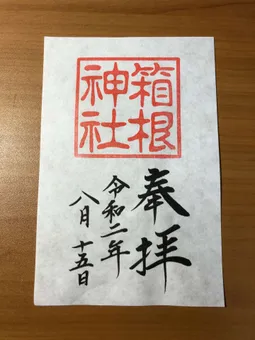 箱根
神社
奉拝
令和二年
八月十五日